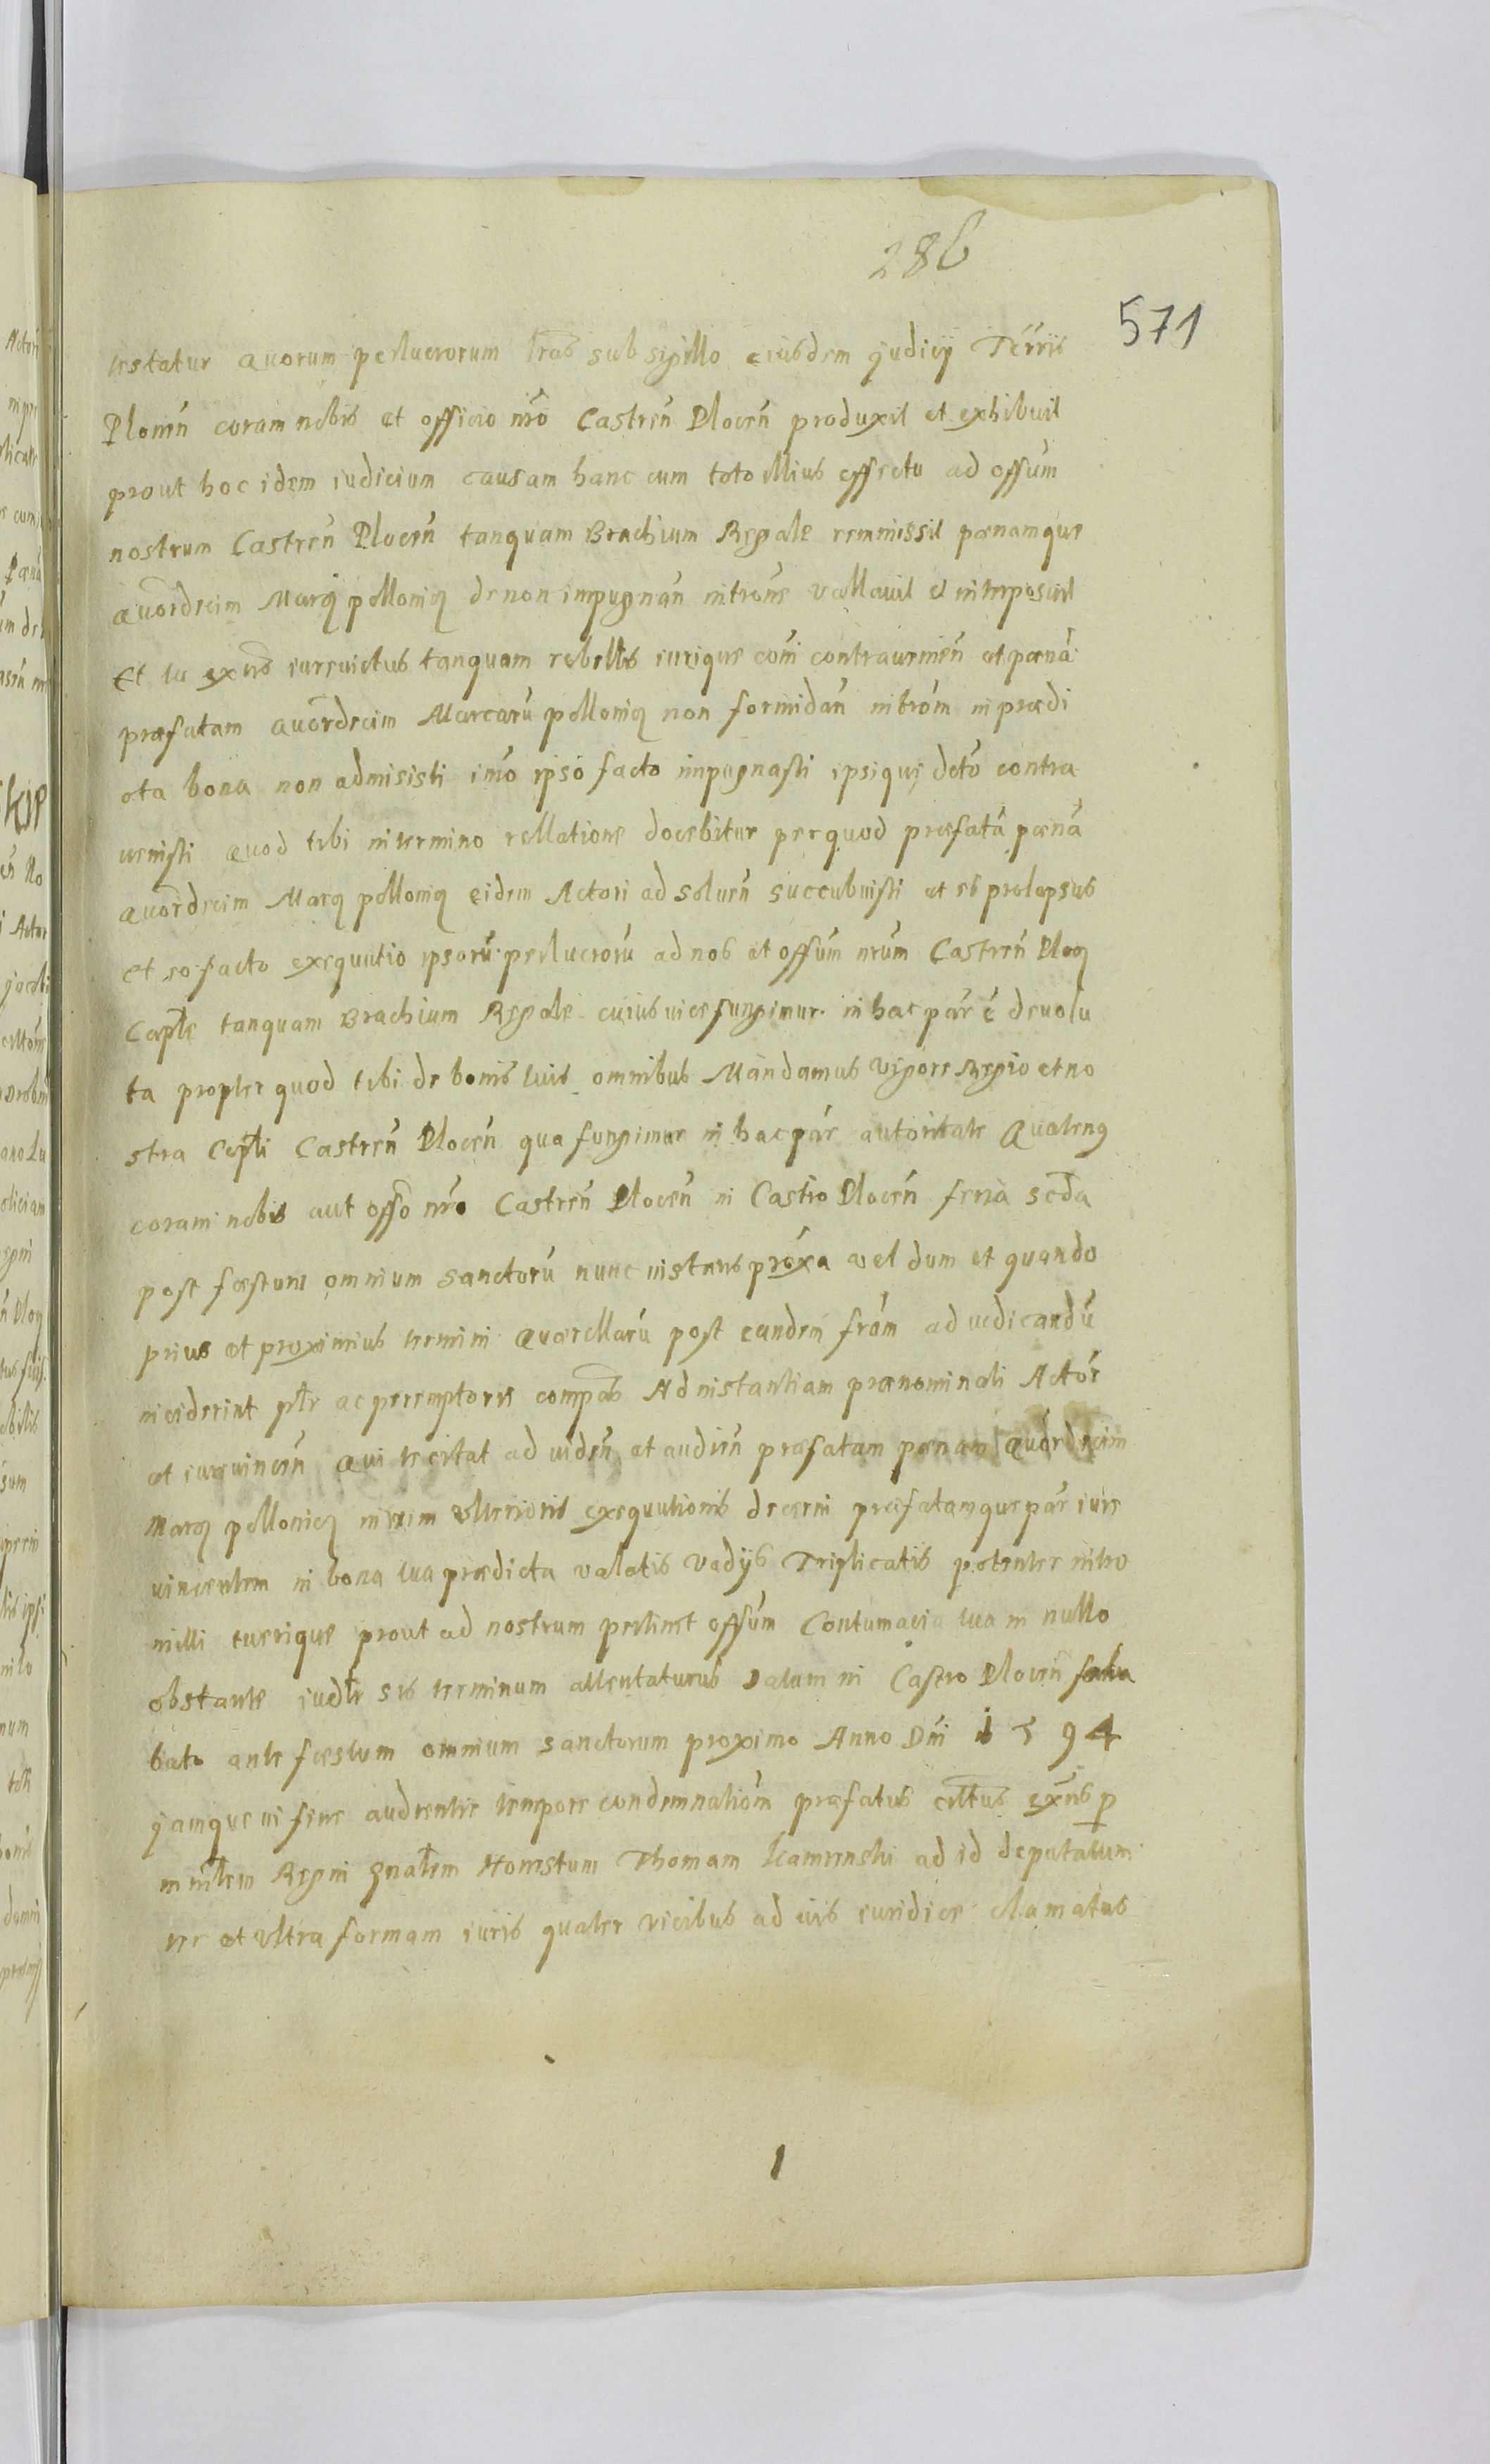 286
571
testatur quorum perlucrorum lras sub sigillo eiusdem judicij Terris
Plonen coram nobis et officio nro Castren Plocen produxit et exhibuit
prout hoc idem iudicium causam hanc cum toto illius effectu ad offum
nostrum Castren Plocen tanquam Brachium Regale remmissit pœnamque
quordecim Marq pollonicq de non impugnan introne vallauit et interposuit
Et tu exns iureuictus tanquam rebellis iurique coni contrauenien et pœnã
præfatam quordecim Marcarũ pollonicq non formidan introm in prædi
cta bona non admisisti imo ipso facto impugnasti ipsique dcto contra
uenisti quod tibi in termino rellatione docebitur per quod præfatã pœnã
quordecim Marq pollonicq eidem Actori ad soluen succubuisti et es prolapsus
et eo facto exequutio ipsorũ perlucrorũ ad nos et offum nrum Castren Plocq
Caple tanquam Brachium Regale cuius uice fungimur in hac par é deuolu
ta propter quod tibi de bonis tuis omnibus Mandamus vigore Regio et no
stra Capli Castren Plocen qua fungimur in hac par autoritate Quatenq
coram nobis aut offo nro Castren Plocen in Castro Plocen feria scda
post fæstum omnium sanctorũ nunc instans proxa vel dum et quando
prius et proximius termini quærellarũ post eandem from ad iudicandũ
inciderint pltr ac peremptorie compas Ad instantiam prænominati Actor
et iureuincen Qui te citat ad uiden et audien præfatam pœnam quordecim
Marq pollonicq in rem vlterioris exequutionis decerni præfatamque par iure
uincentem in bona tua prædicta valatis vadijs Triplicatis potenter intro
mitti tuerique prout ad nostrum pertinet offum Contumacia tua in nullo
obstante iudlr sis terminum attentaturus Datum in Castro Plocen Saba
bato ante fæstum omnium sanctorum proximo Anno Dni 1594
jamque in fine audientie tempore condemnationi præfatus cittus exns p
minlem Regni gnalem Honestum Thomam Kamienski ad id deputatum
ter et vltra formam iuris quater vicibus ad ius iuridice clamatus